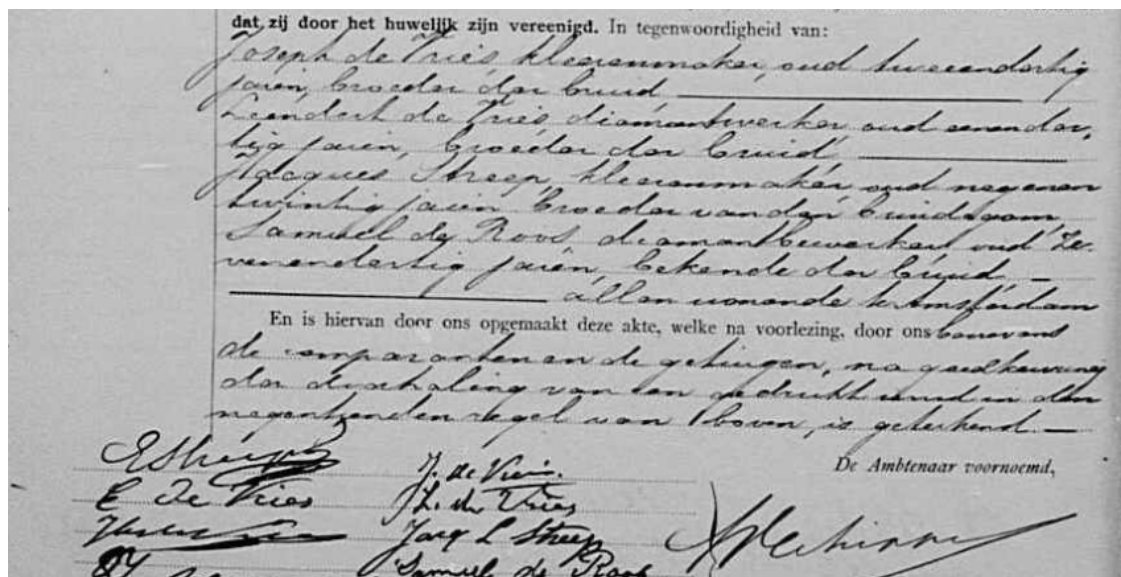 dat zij door het huwelijk zijn vereenigd. In tegenwoordigheid van:
Joseph de Vries, kleerenmaker, oud tweeendertig
jaren, broeder der bruid
Leendert de Vries diamantwerker oud eenender-
tig jaren, broeder der bruid,
Jacques Streep, kleerenmaker oud negenen
twintig jaren broeder van den bruidegom
Samuel de Roos, diamantbewerker oud Ze-
venendertig jaren, bekende der bruid —
allen wonende te Amsterdam
En is hiervan door ons opgemaakt deze akte, welke na voorlezing, door ons benevens
de comparanten en de getuigen, na goedkeuring
der doorhaling van een gedrukt woord in den
negentienden regel van boven, is geteekend. —
De Ambtenaar voornoemd,
EStreep
J. de Vries.
E de Vries
L. de Vries
Jacq L Streep
Samuel de Roos